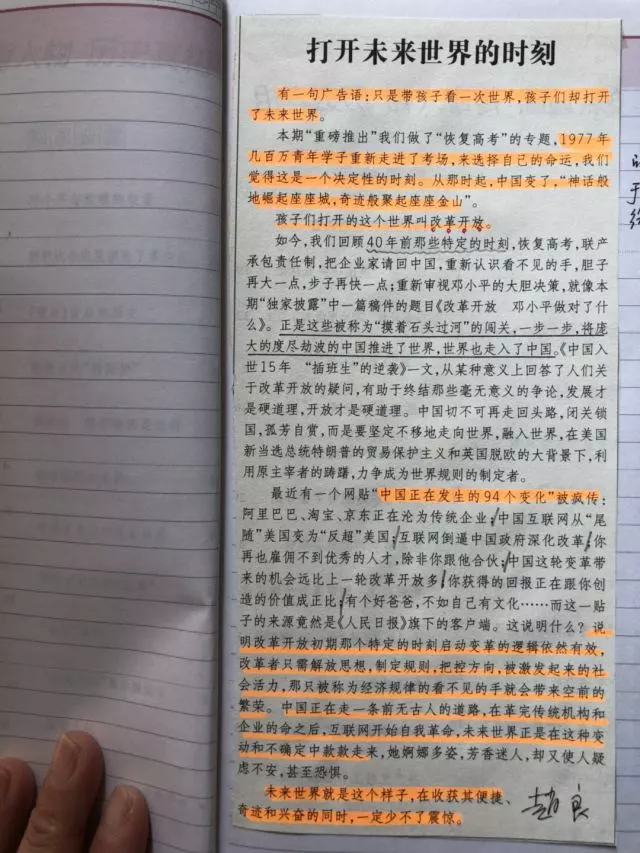 打开未来世界的时刻
有一句广告语:只是带孩子看一次世界,孩子们却打开
了未来世界。
本期“重磅推出”我们做了“恢复高考”的专题,1977年
几百万青年学子重新走进了考场,来选择自己的命运,我们
觉得这是一个决定性的时刻。从那时起,中国变了,“神话般
地崛起座座城,奇迹般聚起座座金山”。
孩子们打开的这个世界叫改革开放。
如今,我们回顾40年前那些特定的时刻,恢复高考,联产
承包责任制,把企业家请回中国,重新认识看不见的手,胆子
再大一点,步子再快一点;重新审视邓小平的大胆决策,就像本
期“独家披露”中一篇稿件的题目《改革开放 邓小平做对了什
么》。正是这些被称为“摸着石头过河”的闯关,一步一步,将庞
大的度尽劫波的中国推进了世界,世界也走入了中国。《中国入
世15年 “插班生”的逆袭》一文,从某种意义上回答了人们关
于改革开放的疑问,有助于终结那些毫无意义的争论,发展才
是硬道理,开放才是硬道理。中国切不可再走回头路,闭关锁
国,孤芳自赏,而是要坚定不移地走向世界,融入世界,在美国
新当选总统特朗普的贸易保护主义和英国脱欧的大背景下,利
用原主宰者的踌躇,力争成为世界规则的制定者。
最近有一个网贴“中国正在发生的94个变化”被疯传:
阿里巴巴、淘宝、京东正在沦为传统企业;中国互联网从“尾
随”美国变为“反超”美国;互联网倒逼中国政府深化改革;你
再也雇佣不到优秀的人才,除非你跟他合伙;中国这轮变革带
来的机会远比上一轮改革开放多;你获得的回报正在跟你创
造的价值成正比;有个好爸爸,不如自己有文化……而这一贴
子的来源竟然是《人民日报》旗下的客户端。这说明什么?说
明改革开放初期那个特定的时刻启动变革的逻辑依然有效,
改革者只需解放思想,制定规则,把控方向,被激发起来的社
会活力,那只被称为经济规律的看不见的手就会带来空前的
繁荣。中国正在走一条前无古人的道路,在革完传统机构和
企业的命之后,互联网开始自我革命,未来世界正是在这种变
动和不确定中款款走来,她婀娜多姿,芳香迷人,却又使人疑
虑不安,甚至恐惧。
未来世界就是这个样子,在收获其便捷、
奇迹和兴奋的同时,一定少不了震惊。